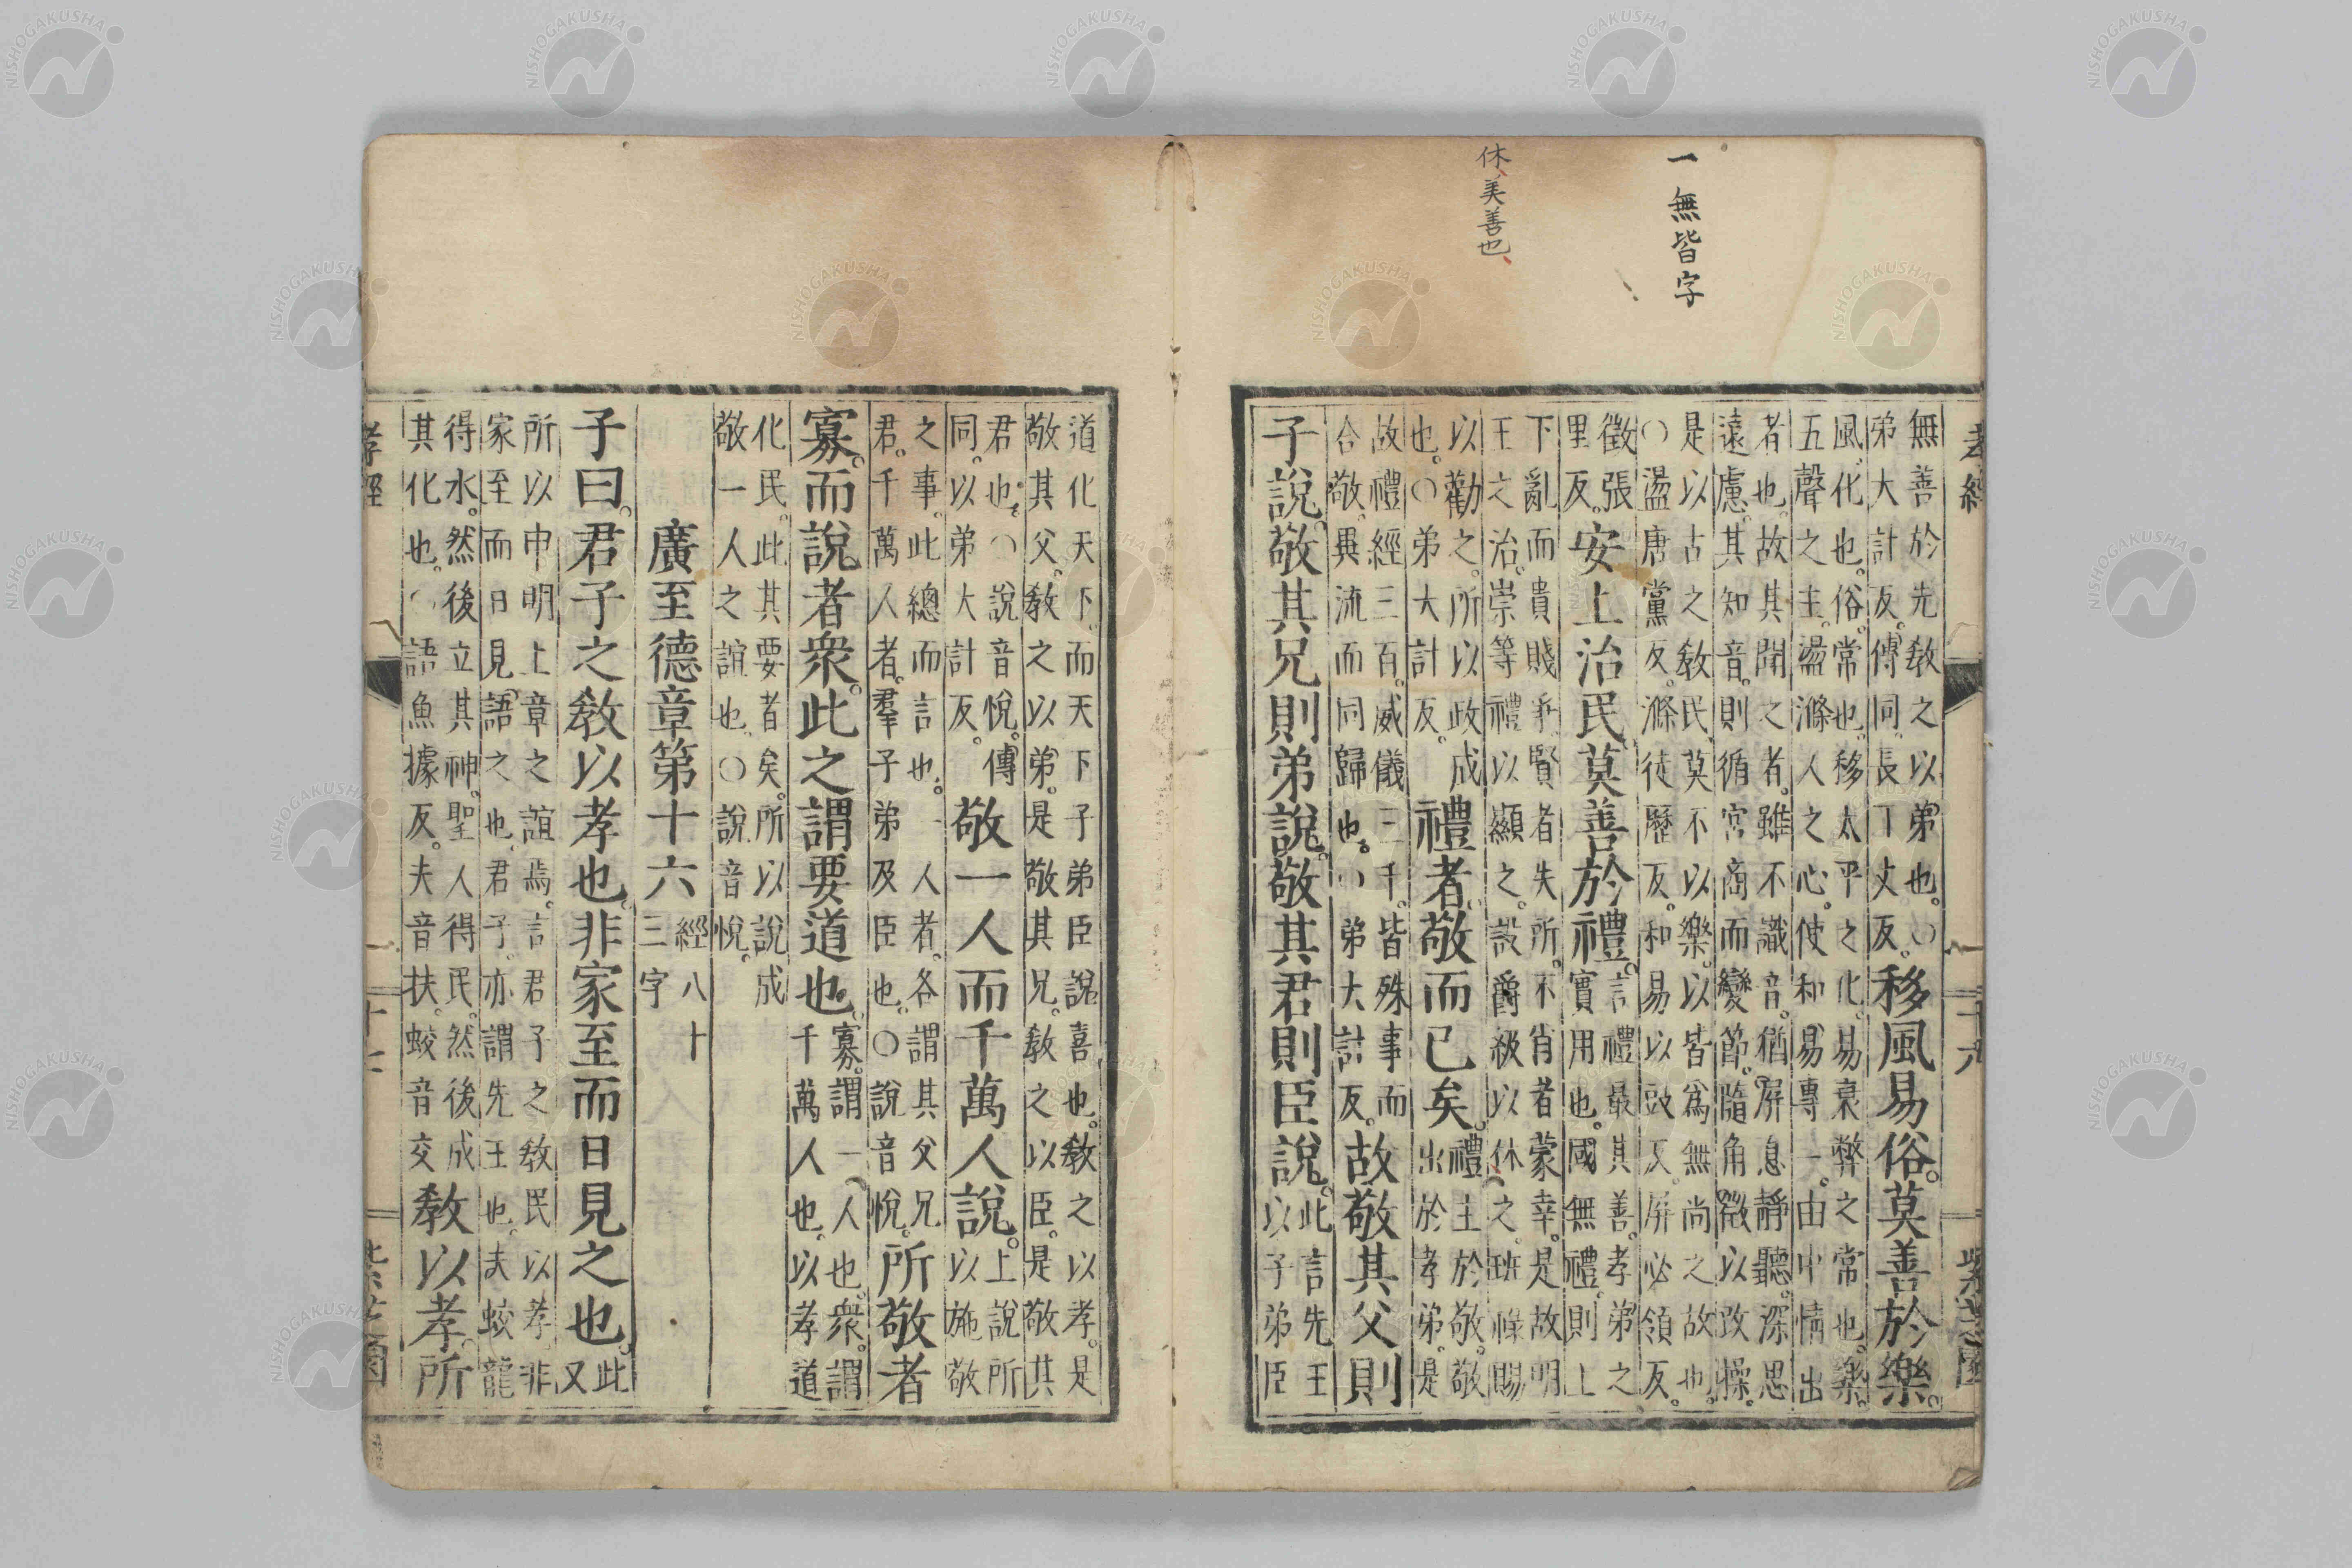 一無皆字
休美善也
無善於先敎之以弟也○
弟大計反傳同長丁丈反
移風易俗莫善於樂
風化也俗常也移太平之化易衰弊之常也樂
五聲之主盪滌人之心使和易專一由中情出
者也故其聞之者雖不識音猶屏息靜聽深思
遠慮其知音則循宮商而變節隨角徵以改操
是以古之敎民莫不以樂以皆爲無尚之故也
○盪唐黨反滌徒歷反和易以豉反屏必領反
徵張
里反
安上治民莫善於禮
言禮最其善孝弟之
實用也國無禮則上
下亂而貴賤爭賢者失所不肖者蒙幸是故明
王之治崇等禮以顯之設爵級以休之班祿賜
以勸之所以政成
也○弟大計反
禮者敬而已矣
禮主於敬敬
出於孝弟是
故禮經三百威儀三千皆殊事而
合敬異流而同歸也○弟大計反
故敬其父則
子說敬其兄則弟說敬其君則臣說
此言先王
以子弟臣
道化天下而天下子弟臣說喜也敎之以孝是
敬其父敎之以弟是敬其兄敎之以臣是敬其
君也○說音悅傳
同以弟大計反
敬一人而千萬人說
上說所
以施敬
之事此總而言也一人者各謂其父兄
君千萬人者羣子弟及臣也○說音悅
所敬者
寡而說者衆此之謂要道也
寡謂一人也衆謂
千萬人也以孝道
化民此其要者矣所以說成
敬一人之誼也○說音悅
廣至德章第十六
經八十
三字
子曰君子之敎以孝也非家至而日見之也
此
又
所以申明上章之誼焉言君子之敎民以孝非
家至而日見語之也君子亦謂先王也夫蛟龍
得水然後立其神聖人得民然後成
其化也○語魚據反夫音扶蛟音交
敎以孝所